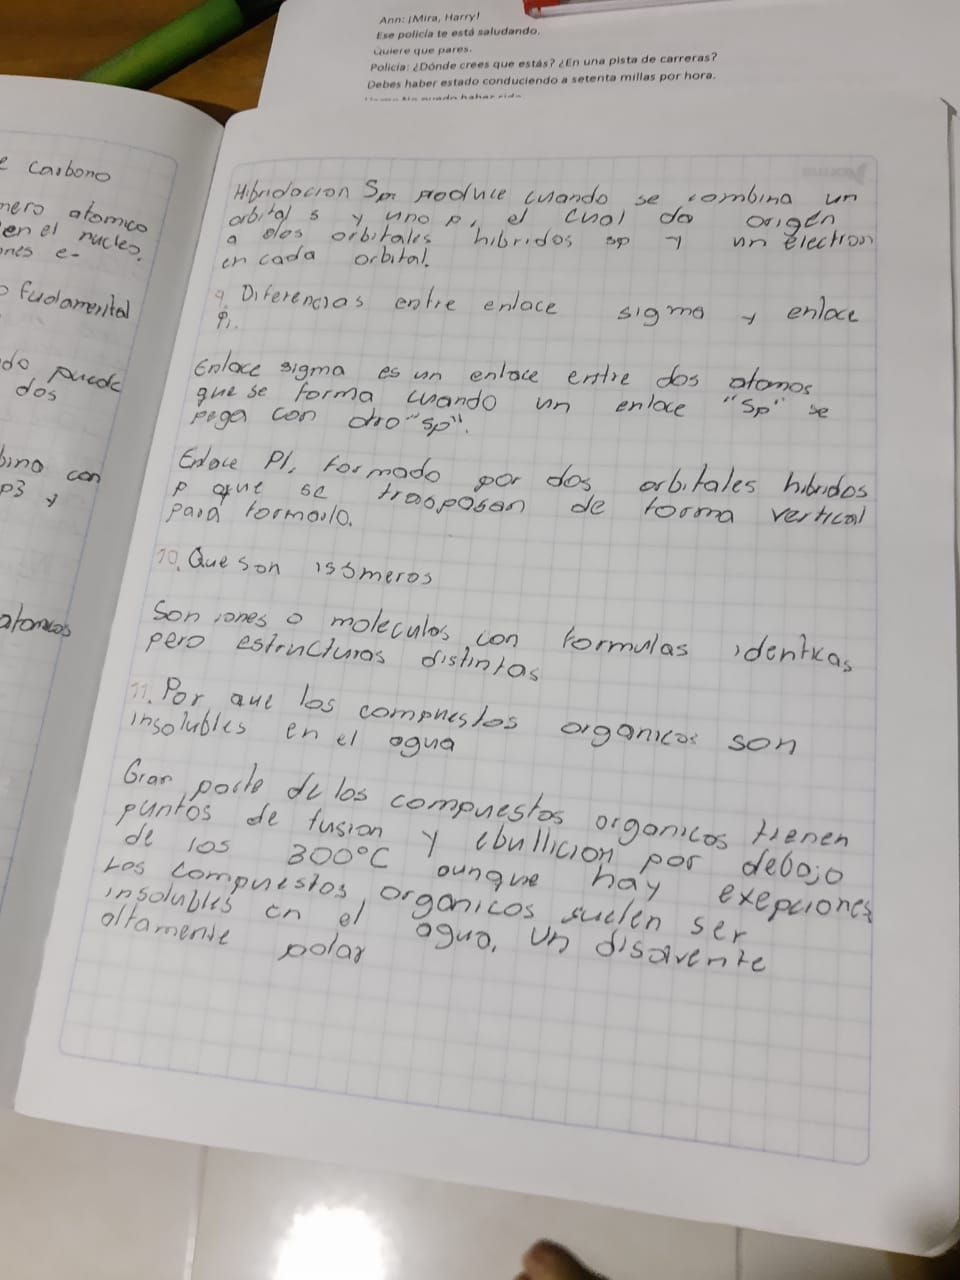 Ann: ¡Mira, Harry!
Ese policía te está saludando.
Quiere que pares.
Policía: ¿Dónde crees que estás? ¿En una pista de carreras?
Debes haber estado conduciendo a setenta millas por hora.
e carbono
mero atomico
en el nucleo.
ones e-
o fudamental
do puede
dos
bino con
p3 y
atomicos
Hibridacion Sp, produce cuando se combina un
orbital s y uno p, el cual da origen
a dos orbitales hibridos sp y un electron
en cada orbital.
9. Diferencias entre enlace sigma y enlace
Pi.
Enlace sigma es un enlace entre dos atomos
que se forma cuando un enlace "Sp" se
pega con otro "sp".
Enlace PI, formado por dos orbitales hibridos
p que se trasposan de forma vertical
para formarlo.
10. Que son isómeros
Son iones o moleculas con formulas identicas
pero estructuras distintas
11. Por que los compuestos organicos son
insolubles en el agua
Gran parte de los compuestos organicos tienen
puntos de fusion y ebullicion por debajo
de los 300°C aunque hay exepciones
Los compuestos organicos suelen ser
insolubles en el agua, un disolvente
altamente polar